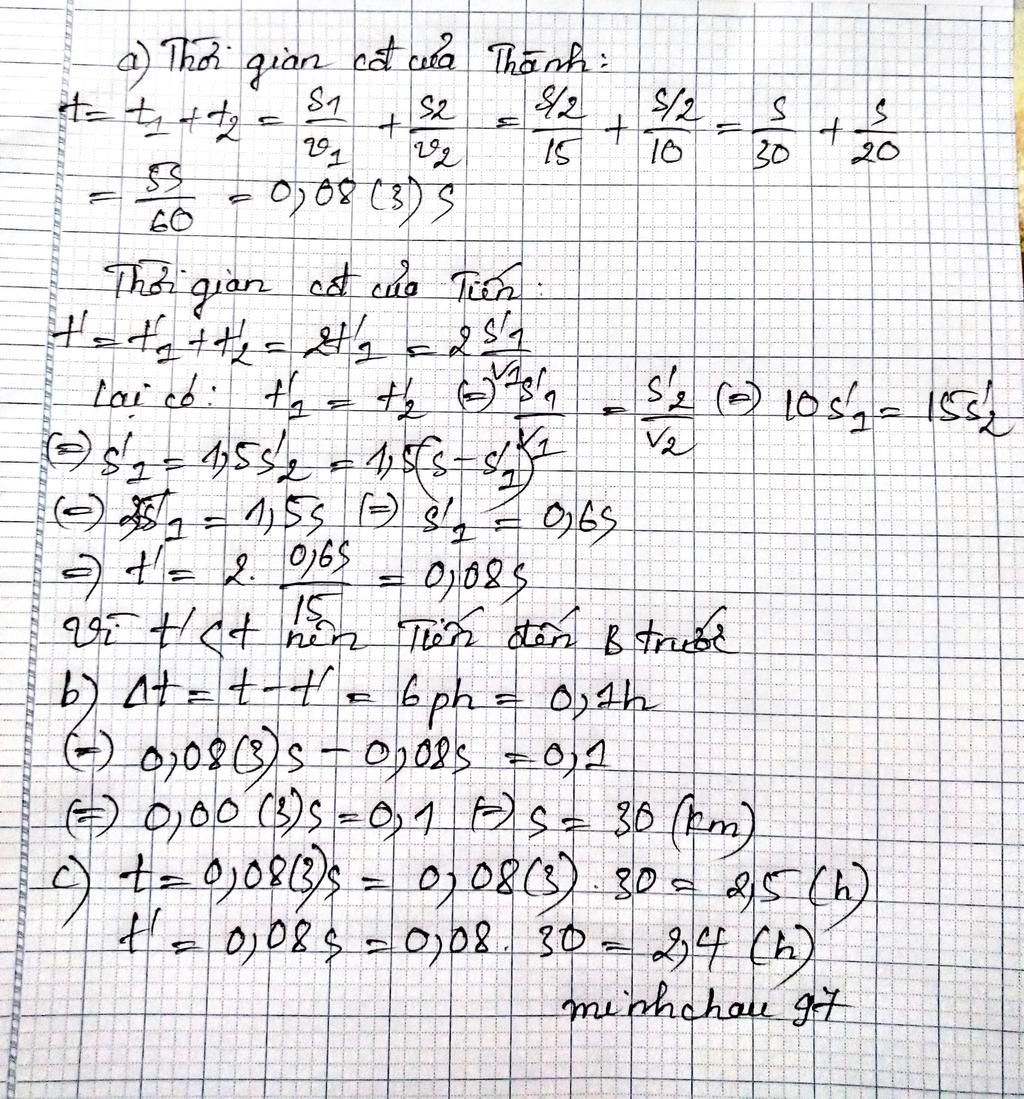 a) Thời gian cđ của Thành:
t = t1 + t2 = S1/v1 + S2/v2 = S/2/15 + S/2/10 = S/30 + S/20
= 5S/60 = 0,08(3)S
Thời gian cđ của Tiến:
t' = t'1 + t'2 = 2t'1 = 2 S'1/v1
Lại có: t'1 = t'2 (=) S'1/v1 = S'2/v2 (=) 10S'1 = 15S'2
(=) S'1 = 1,5S'2 = 1,5(S - S'1)
(=) 2,5S'1 = 1,5S (=) S'1 = 0,6S
=) t' = 2. 0,6S/15 = 0,08S
Vì t' < t nên Tiến đến B trước
b) Δt = t - t' = 6ph = 0,1h
(=) 0,08(3)S - 0,08S = 0,1
(=) 0,00(3)S = 0,1 (=) S = 30 (km)
c) t = 0,08(3)S = 0,08(3) . 30 = 2,5 (h)
t' = 0,08S = 0,08 . 30 = 2,4 (h)
minhchau 97